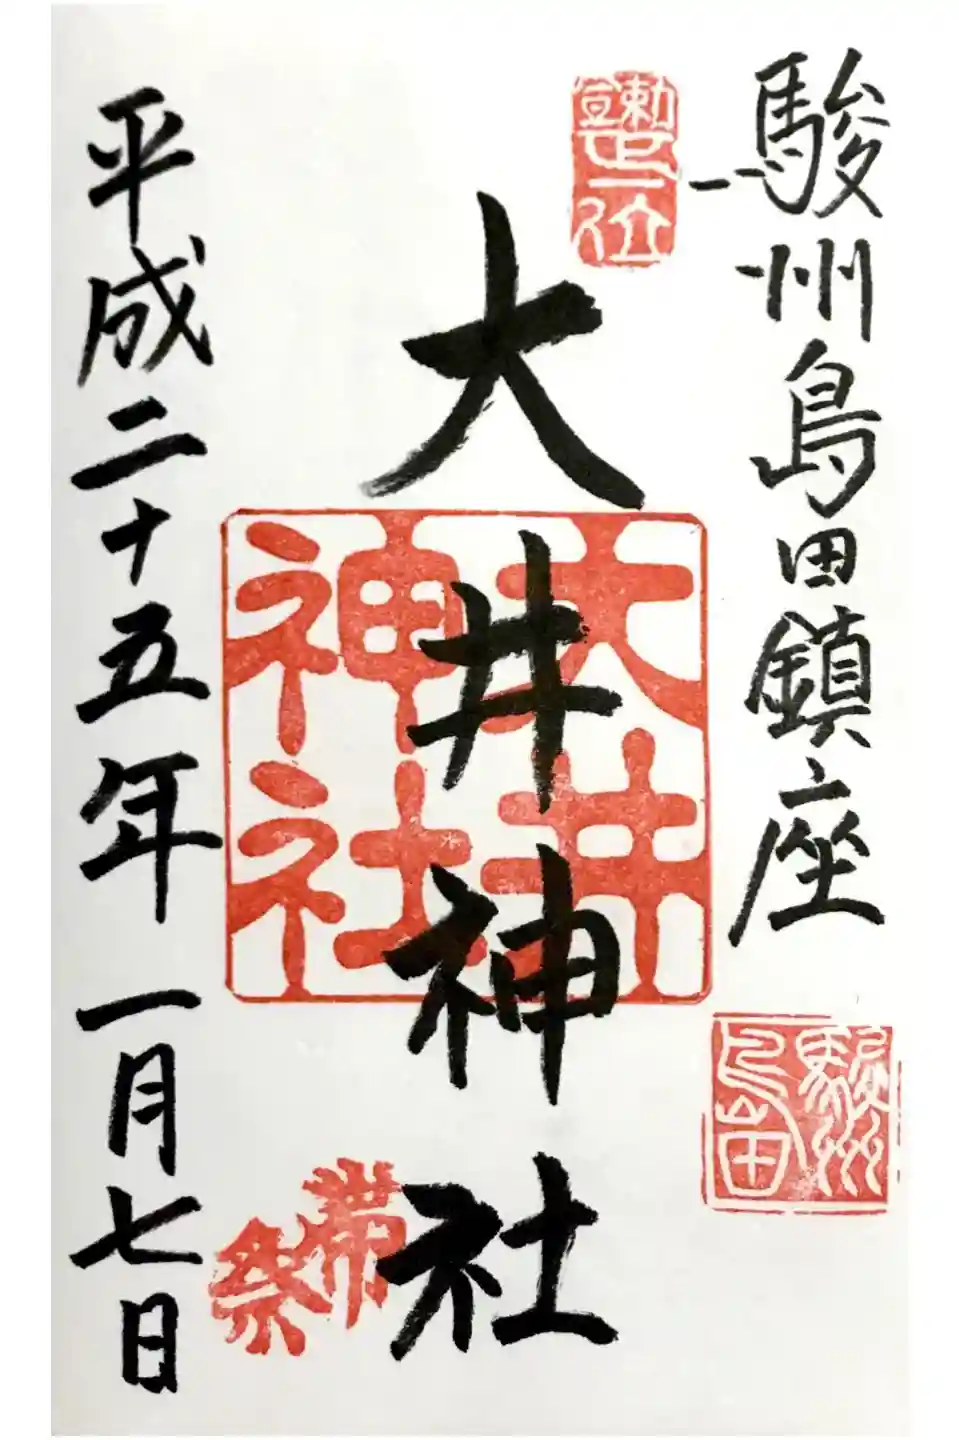 駿州島田鎮座
勅宣正一位
大井神社
大井神社
駿州島田
帯祭
平成二十五年一月七日